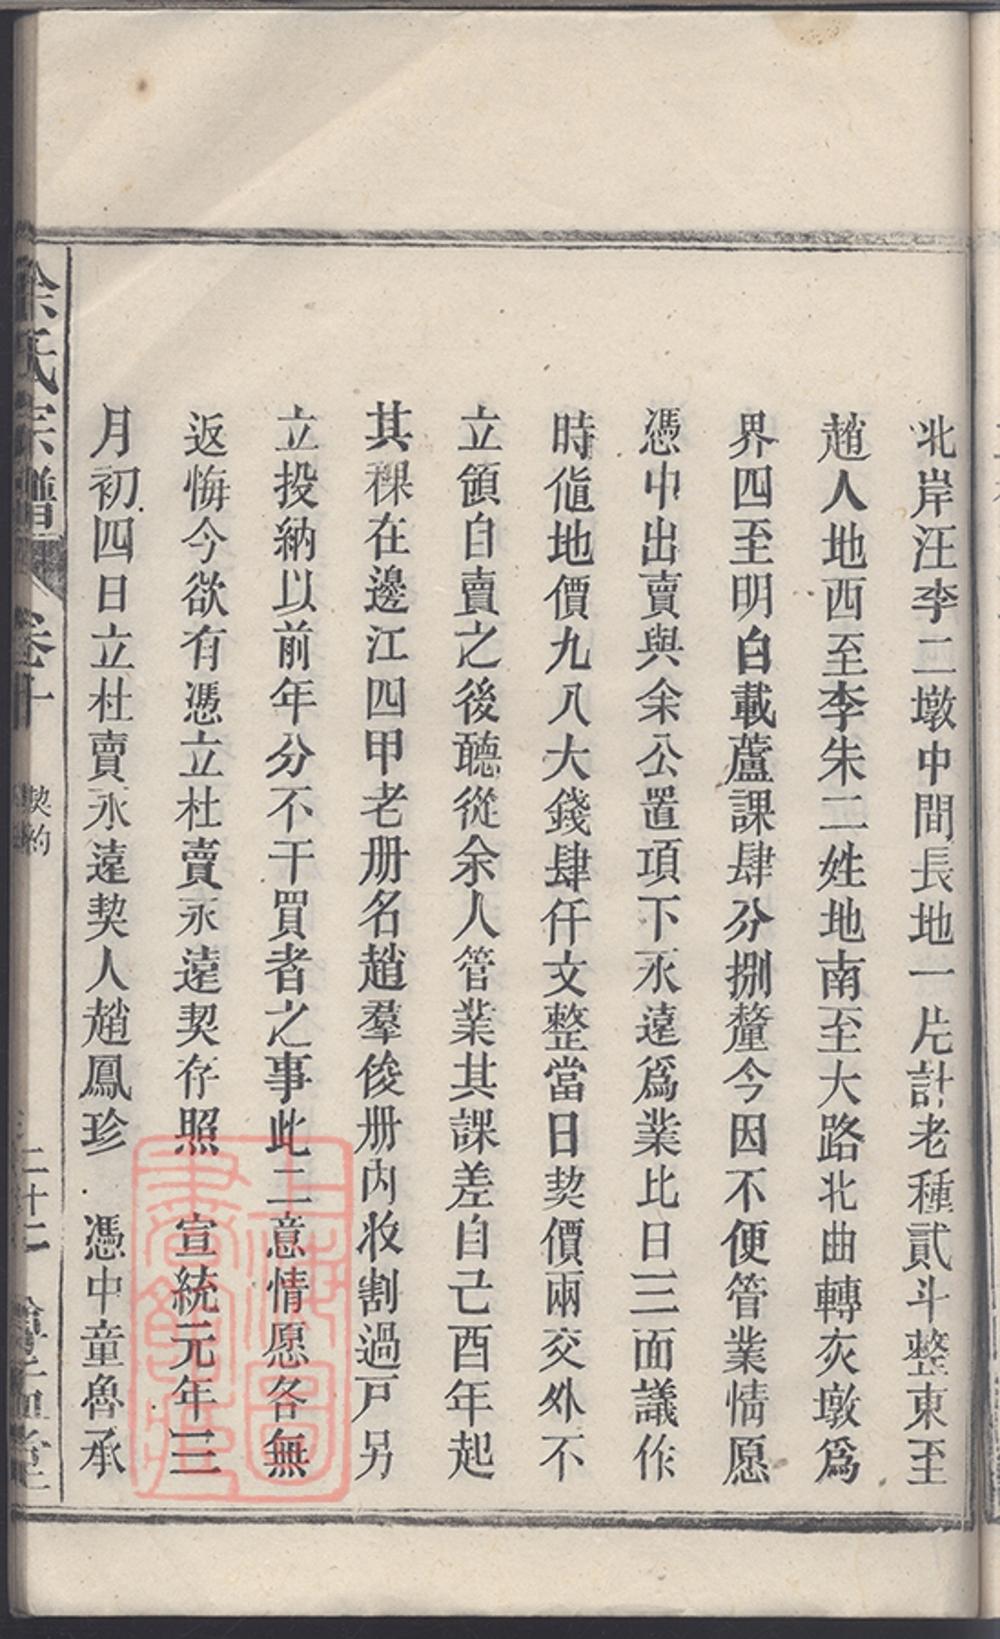 北岸汪李二墩中間長地一片計老種貳斗整東至
趙人地西至李朱二姓地南至大路北曲轉灰墩爲
界四至明白載蘆課肆分捌釐今因不便管業情愿
憑中出賣與余公置項下永遠爲業比日三面議作
時值地價九八大錢肆仟文整當日契價兩交外不
立領自賣之後聽從余人管業其課差自己酉年起
其稞在邊江四甲老册名趙羣俊册内收割過戸另
立投納以前年分不干買者之事此二意情愿各無
返悔今欲有憑立杜賣永遠契存照　宣統元年三
月初四日立杜賣永遠契人趙鳳珍　憑中童魯承
余氏宗譜　卷十　契約　二十二
上海圖書館藏